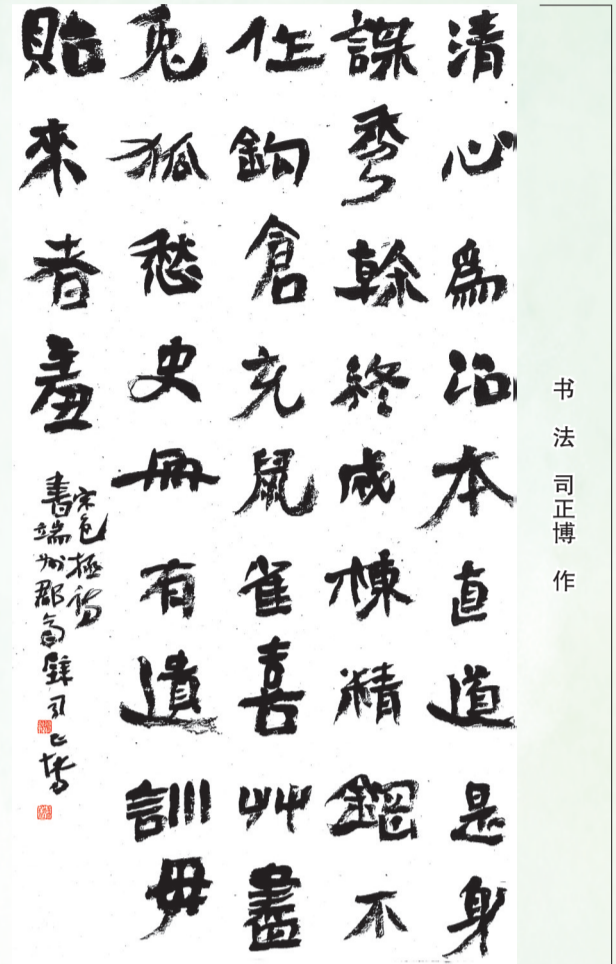 书法 司正博 作
清心為治本直道是身
謀秀榦終成棟精鋼不
作鉤倉充鼠雀喜艸盡
兎狐愁史冊有遺訓毋
貽來者羞
宋包拯詩
書端州郡齋壁 司正博